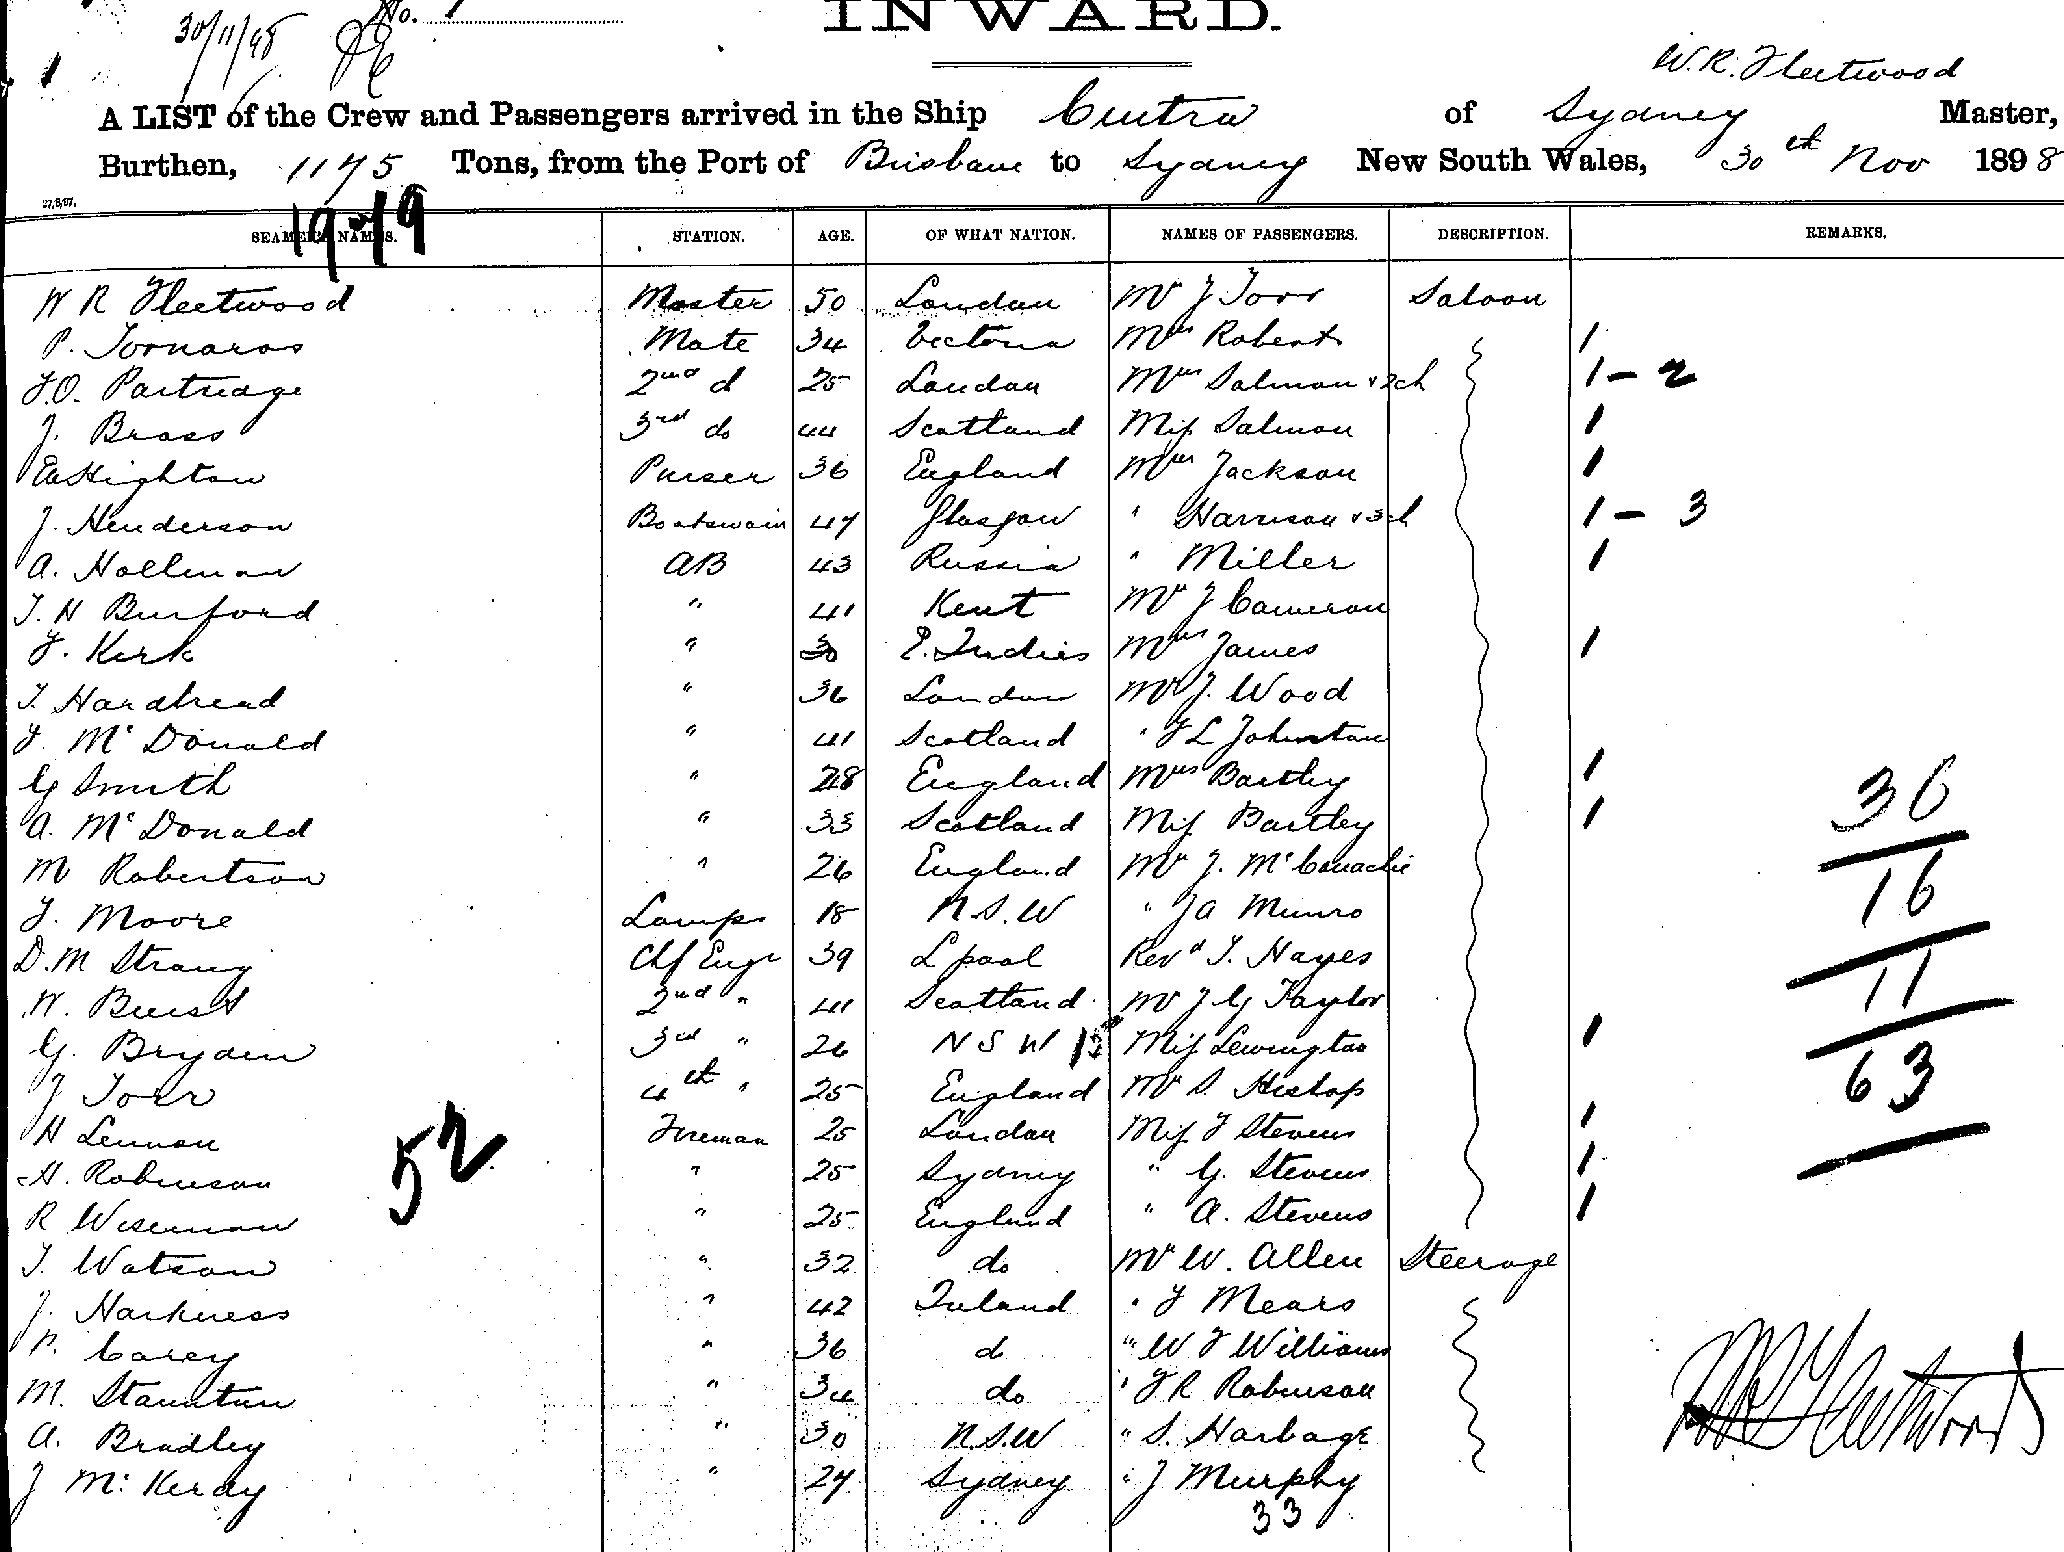 30/11/98 No. 1
INWARD.
W.R. Fleetwood
A LIST of the Crew and Passengers arrived in the Ship Cintra of Sydney Master,
Burthen, 1175 Tons, from the Port of Brisbane to Sydney New South Wales, 30th Nov 1898
27,8,97.
19
19
SEAMEN'S NAMES. STATION. AGE. OF WHAT NATION. NAMES OF PASSENGERS. DESCRIPTION. REMARKS.
W R Fleetwood Master 50 London Mr J Torr Saloon
P. Tornaros Mate 34 Victoria Mrs Roberts 1
F.O. Partridge 2nd d 25 London Mrs Salmon & 2ch 1 - 2
J. Brass 3rd do 44 Scotland Miss Salmon 1
Highton Purser 36 England Mrs Jackson 1
J. Henderson Boatswain 47 Glasgow " Harrison & 3ch 1 - 3
A. Hollman AB 43 Russia " Miller 1
T. H Burford " 41 Kent Mr J Cameron
J. Kirk " 30 E. Indies Mrs James 1
T. Hardhead " 36 London Mr J. Wood
J. McDonald " 41 Scotland " F L Johnston
G Smith " 28 England Mrs Bartley 1
A. McDonald " 33 Scotland Miss Bartley 1
M Robertson " 26 England Mr J. McConachie
J. Moore Lamps 18 N.S.W " J A Munro
D.M Strang Chf Engr 39 L'pool Revd T. Hayes
W. Buist 2nd " 41 Scotland Mr J G Taylor
G. Bryden 3rd " 26 N S W Miss Lewington 1
J Torr 4th " 25 England Mr S. Hislop
H Lennon Fireman 25 London Miss F Stevens 1
H. Robinson " 25 Sydney " G. Stevens 1
R Wiseman " 25 England " A. Stevens 1
T. Watson " 32 do Mr W. Allen Steerage
J. Harkness " 42 Ireland " F Mears
P. Carey " 36 d " W F Williams
M. Staunton " 34 do " F R Robinson
A. Bradley " 30 N.S.W " S. Harbage
J McKerdy " 27 Sydney " J Murphy
33
52
36
16
11
63
W R Fleetwood